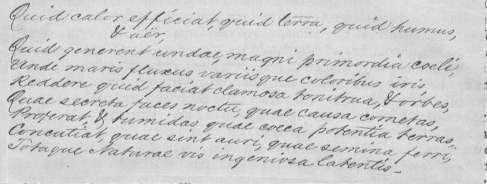 Quid calor efficiat, quid terra, quid humus,
& aër,
Quid generent undae, magni primordia coeli,
Unde maris fluxus variisque coloribus iris,
Reddere quid faciat clamosa tonitrua, & orbes,
Quae secreta faces noctu, quae causa cometas,
Proferat, & tumidas quae cocca potentia terras,
Concutiat, quae sint auri, quae semina ferri,
Totaque Naturae vis ingeniosa latentis—